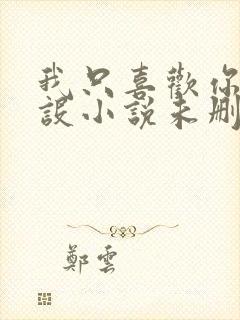 我只喜歡你
設小說未刪
鄭雲